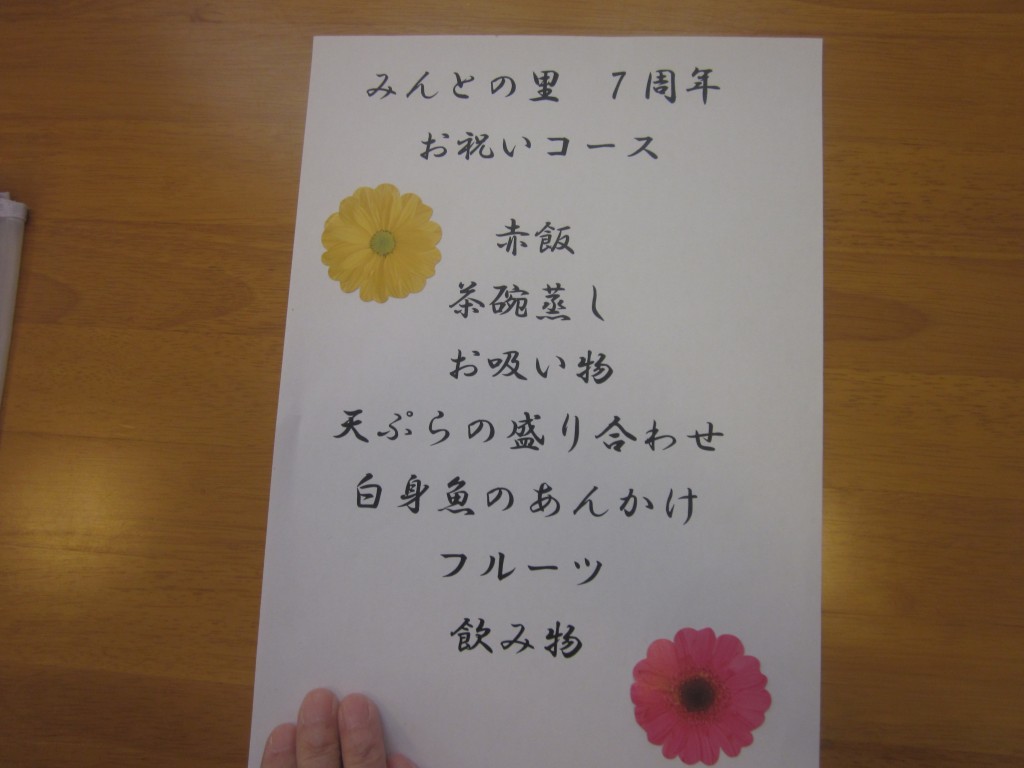 みんとの里　7周年
お祝いコース
赤飯
茶碗蒸し
お吸い物
天ぷらの盛り合わせ
白身魚のあんかけ
フルーツ
飲み物